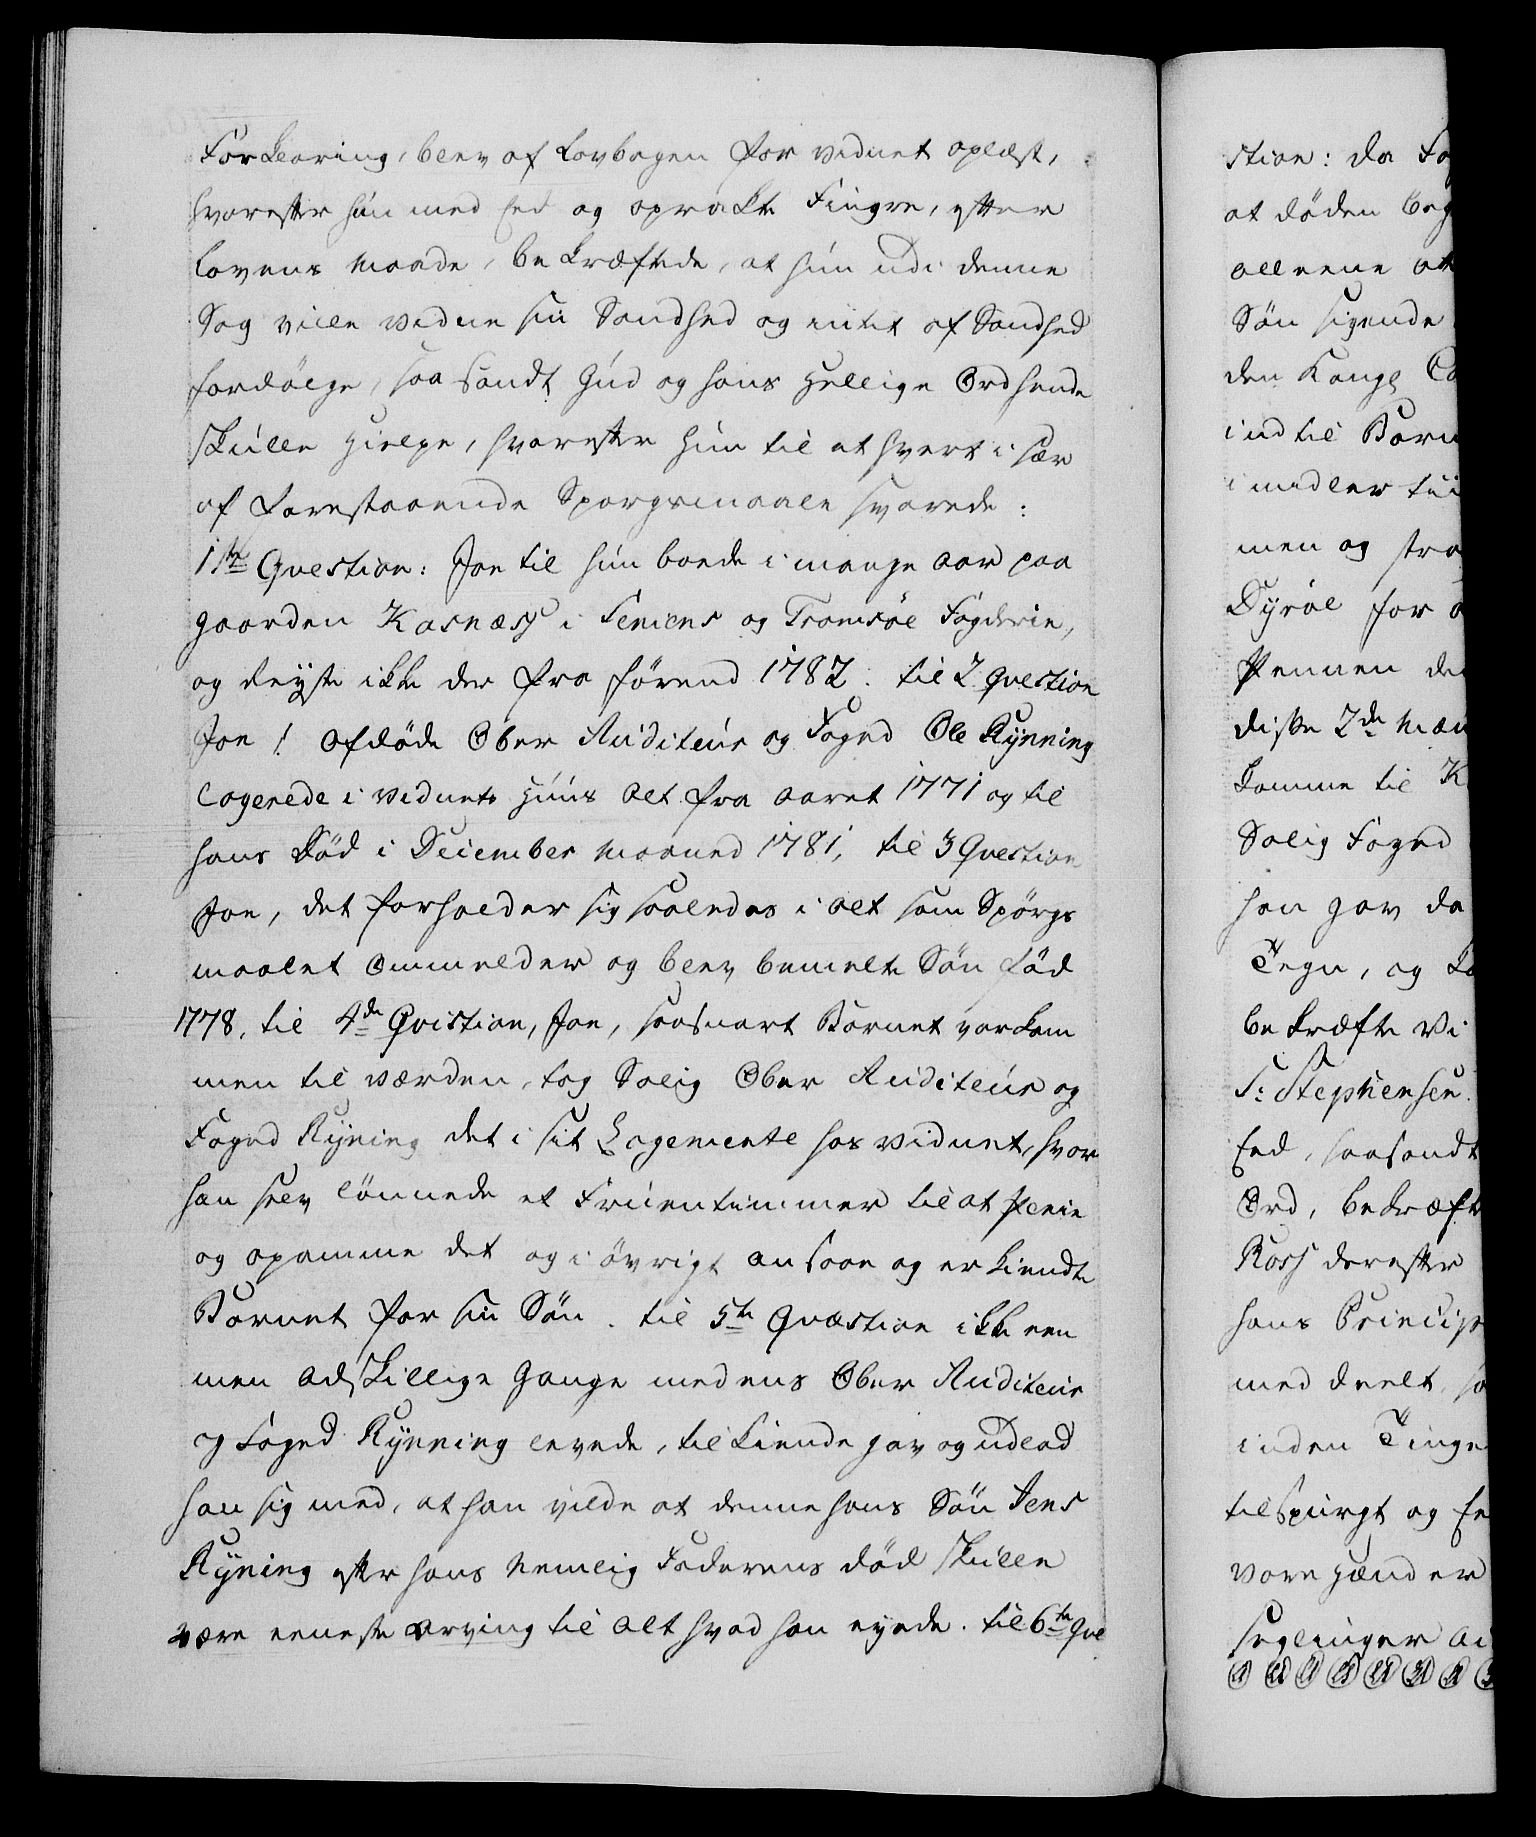 Forklaring, blev af Lovbogen for vidnet oplæst,
hvorefter hun med Eed og oprakte Fingre, efter
Lovens Maade, bekræftede, at hun udi denne
Sag ville vidne sin Sandhed og intet af Sandhed
fordölge, saa sandt Gud og hans Hellige Ord hende
skulle Hielpe, hvorefter hun til at hvert i sær
af Forestaaende Spørgsmaale svarede:
1ste Question: Jae til hun boede i mange aar paa
gaarden Kasnæss i Seniens og Tromsöe Fogderie,
og reyste ikke der fra förend 1782. til 2 Question
Jae! Afdöde Ober Auditeur og Foged Ole Rÿnning
Logerede i vidnets Huus alt fra aaret 1771 og til
hans Död i December Maaned 1781, til 3 Question
Jae, det forholder sig saaledes i alt som Spörgs
maalet Ommelder og blev bemelte Sön föd
1778. til 4de Qvistion, Jae, saasnart Barnet var kom
men til Værden, tog Salig Ober Auditeur og
Foged Rÿning det i sit Logemente hos vidnet, hvor
han selv lönnede et Fruentimmer til at pleie
og opamme det og i övrigt ansaae og erkiendte
Barnet for sin Sön. til 5te Qvæstion ikke een
men adskillige Gange medens Ober Auditeur
og Foged Rÿnning levede, tilkiende gav og udlod
han sig med, at han vilde at denne hans Sön Jens
Rÿning efter hans nemlig Faderens död skulle
være eeneste arving til alt hvad han eyede. til 6te Qve
stion: da Fo
at döden beg
alleene at
Sön sigende
den Kongl Co
indtil Barn
imidler tii
men og stra
Dÿröe for
Pennen de
diske 2de Mæn
komme til K
Salig Foged
han gav da
Tegn, og
bekræfte Vi
S: Stephensen
Eed, saasandt
Ord, bekræft
Ross derefter
hans Princip
meddeelt, s
inden Tinge
tilspurgt og
vore Hænder